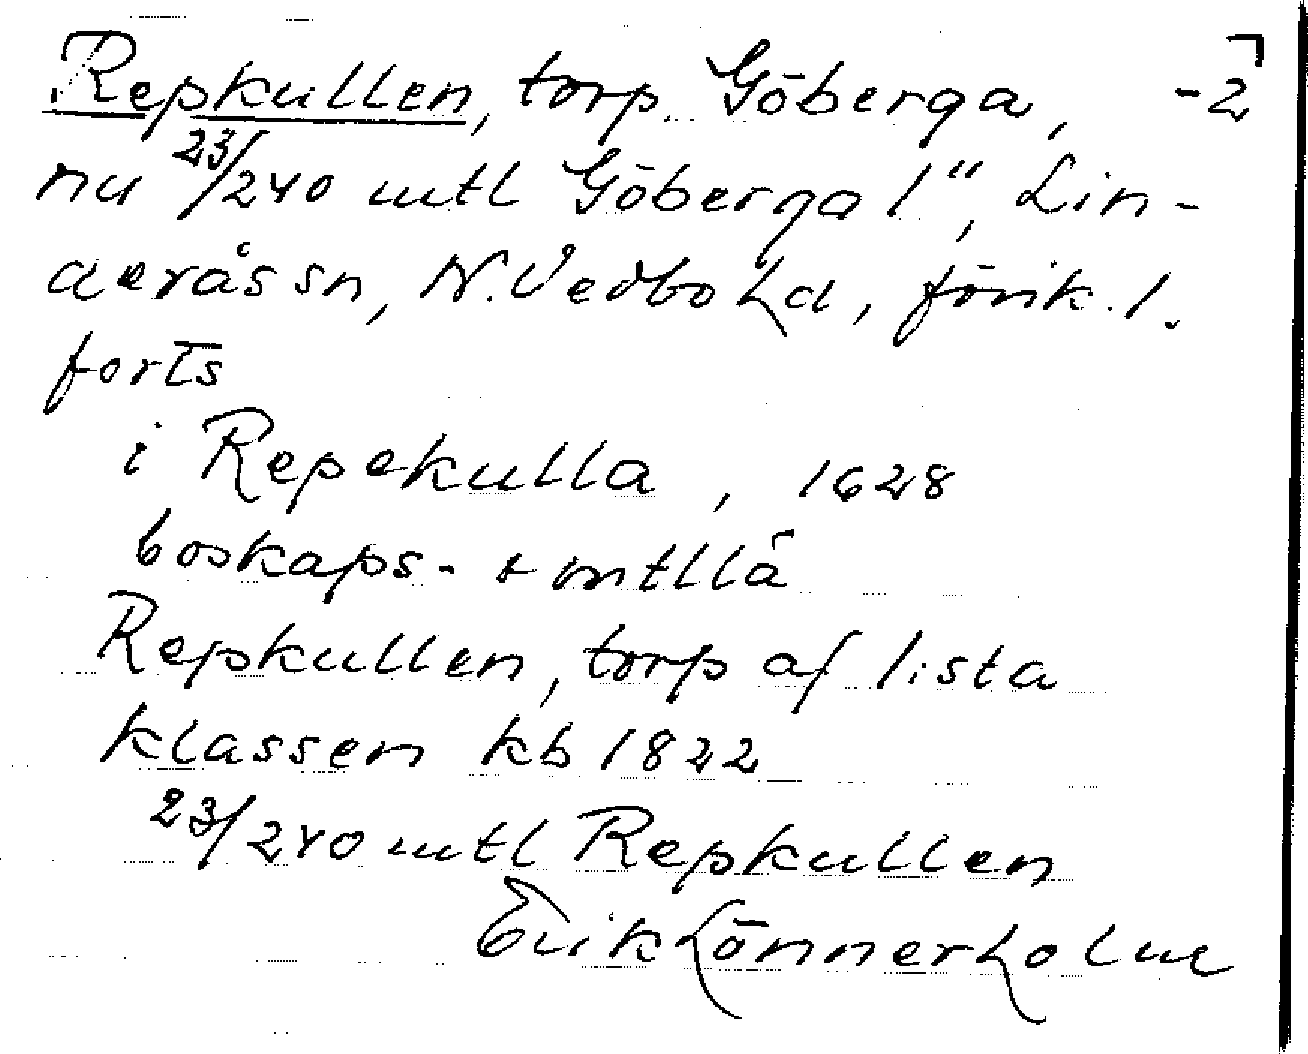 Repkullen, torp Göberga, -2
nu 23/240 mtl Göberga 1", Lin-
derås sn, N. Vedbo hd, förik. 1.
forts
i Repekulla, 1628
boskaps- o mtllä
Repkullen, torp af 1:sta
klassen kb 1822
23/240 mtl Repkullen
Erik Lönnerholm